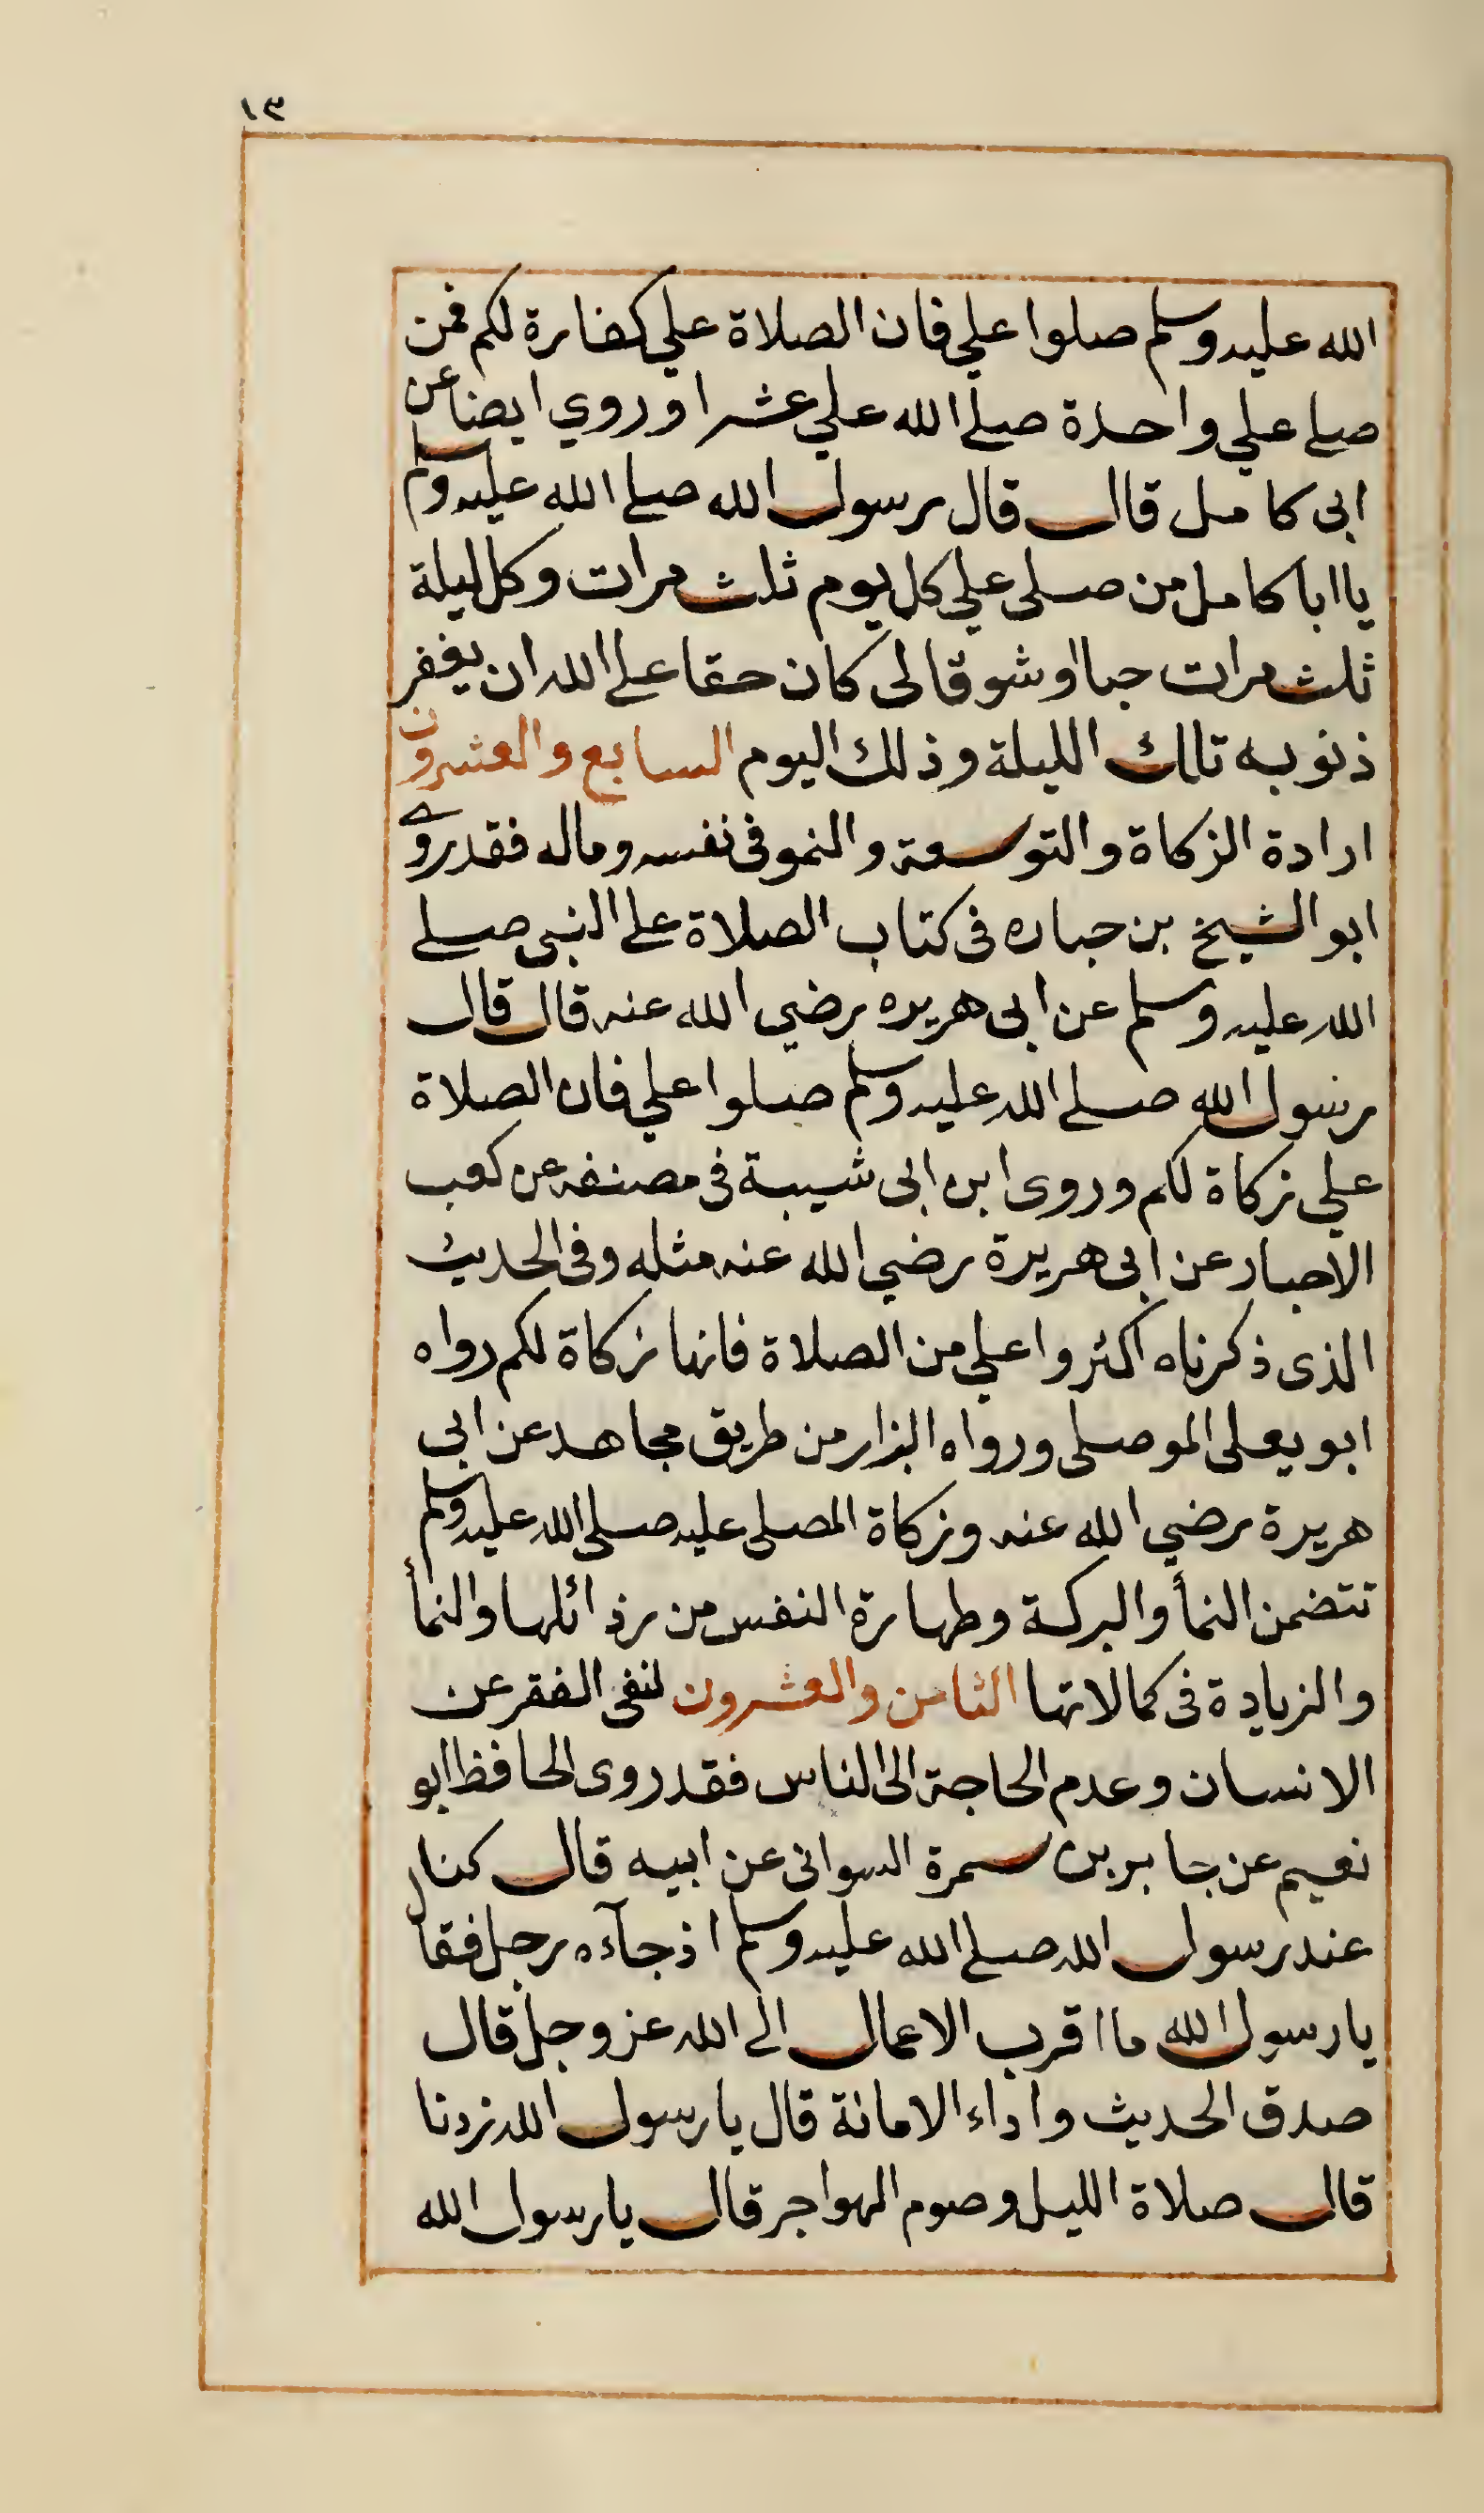 ١٣
الله عليه وسلم صلوا علي فان الصلاة علي كفارة لكم فمن
صلے علي واحدة صلے الله علي عشرا وروي ايضا عن
ابى كامل قال قال رسول الله صلے الله عليه وسلم
يا ابا كامل من صلى علي كل يوم ثلث مرات وكل ليلة
ثلث مرات حبا وشوقا لى كان حقا علے الله ان يغفر
ذنوبه تلك الليلة وذلك اليوم السابع والعشرون
ارادة الزكاة والتوسعة والنمو فى نفسه وماله فقد روے
ابو الشيخ بن حباره فى كتاب الصلاة علے النبى صلے
الله عليه وسلم عن ابى هريره رضي الله عنه قال قال
رسول الله صلے الله عليه وسلم صلوا علي فان الصلاة
علي زكاة لكم وروى ابن ابى شيبة فى مصنفه عن كعب
الاحبار عن ابى هريرة رضي الله عنه مثله وفى الحديث
الذى ذكرناه اكثروا علي من الصلاة فانها زكاة لكم رواه
ابو يعلى الموصلى ورواه البزار من طريق مجاهد عن ابى
هريرة رضي الله عنه وزكاة المصلى عليه صلى الله عليه وسلم
تتضمن النمأ والبركة وطهارة النفس من رذائلها والنمأ
والزيادة فى كمالاتها الثامن والعشرون لنفى الفقر عن
الانسان وعدم الحاجة الى الناس فقد روى الحافظ ابو
نعيم عن جابر بن سمرة السوائى عن ابيه قال كنا
عند رسول الله صلے الله عليه وسلم اذ جآءه رجل فقال
يا رسول الله ما اقرب الاعمال الے الله عز وجل قال
صدق الحديث واداء الامانة قال يا رسول الله زدنا
قال صلاة الليل وصوم الهواجر قال يا رسول الله